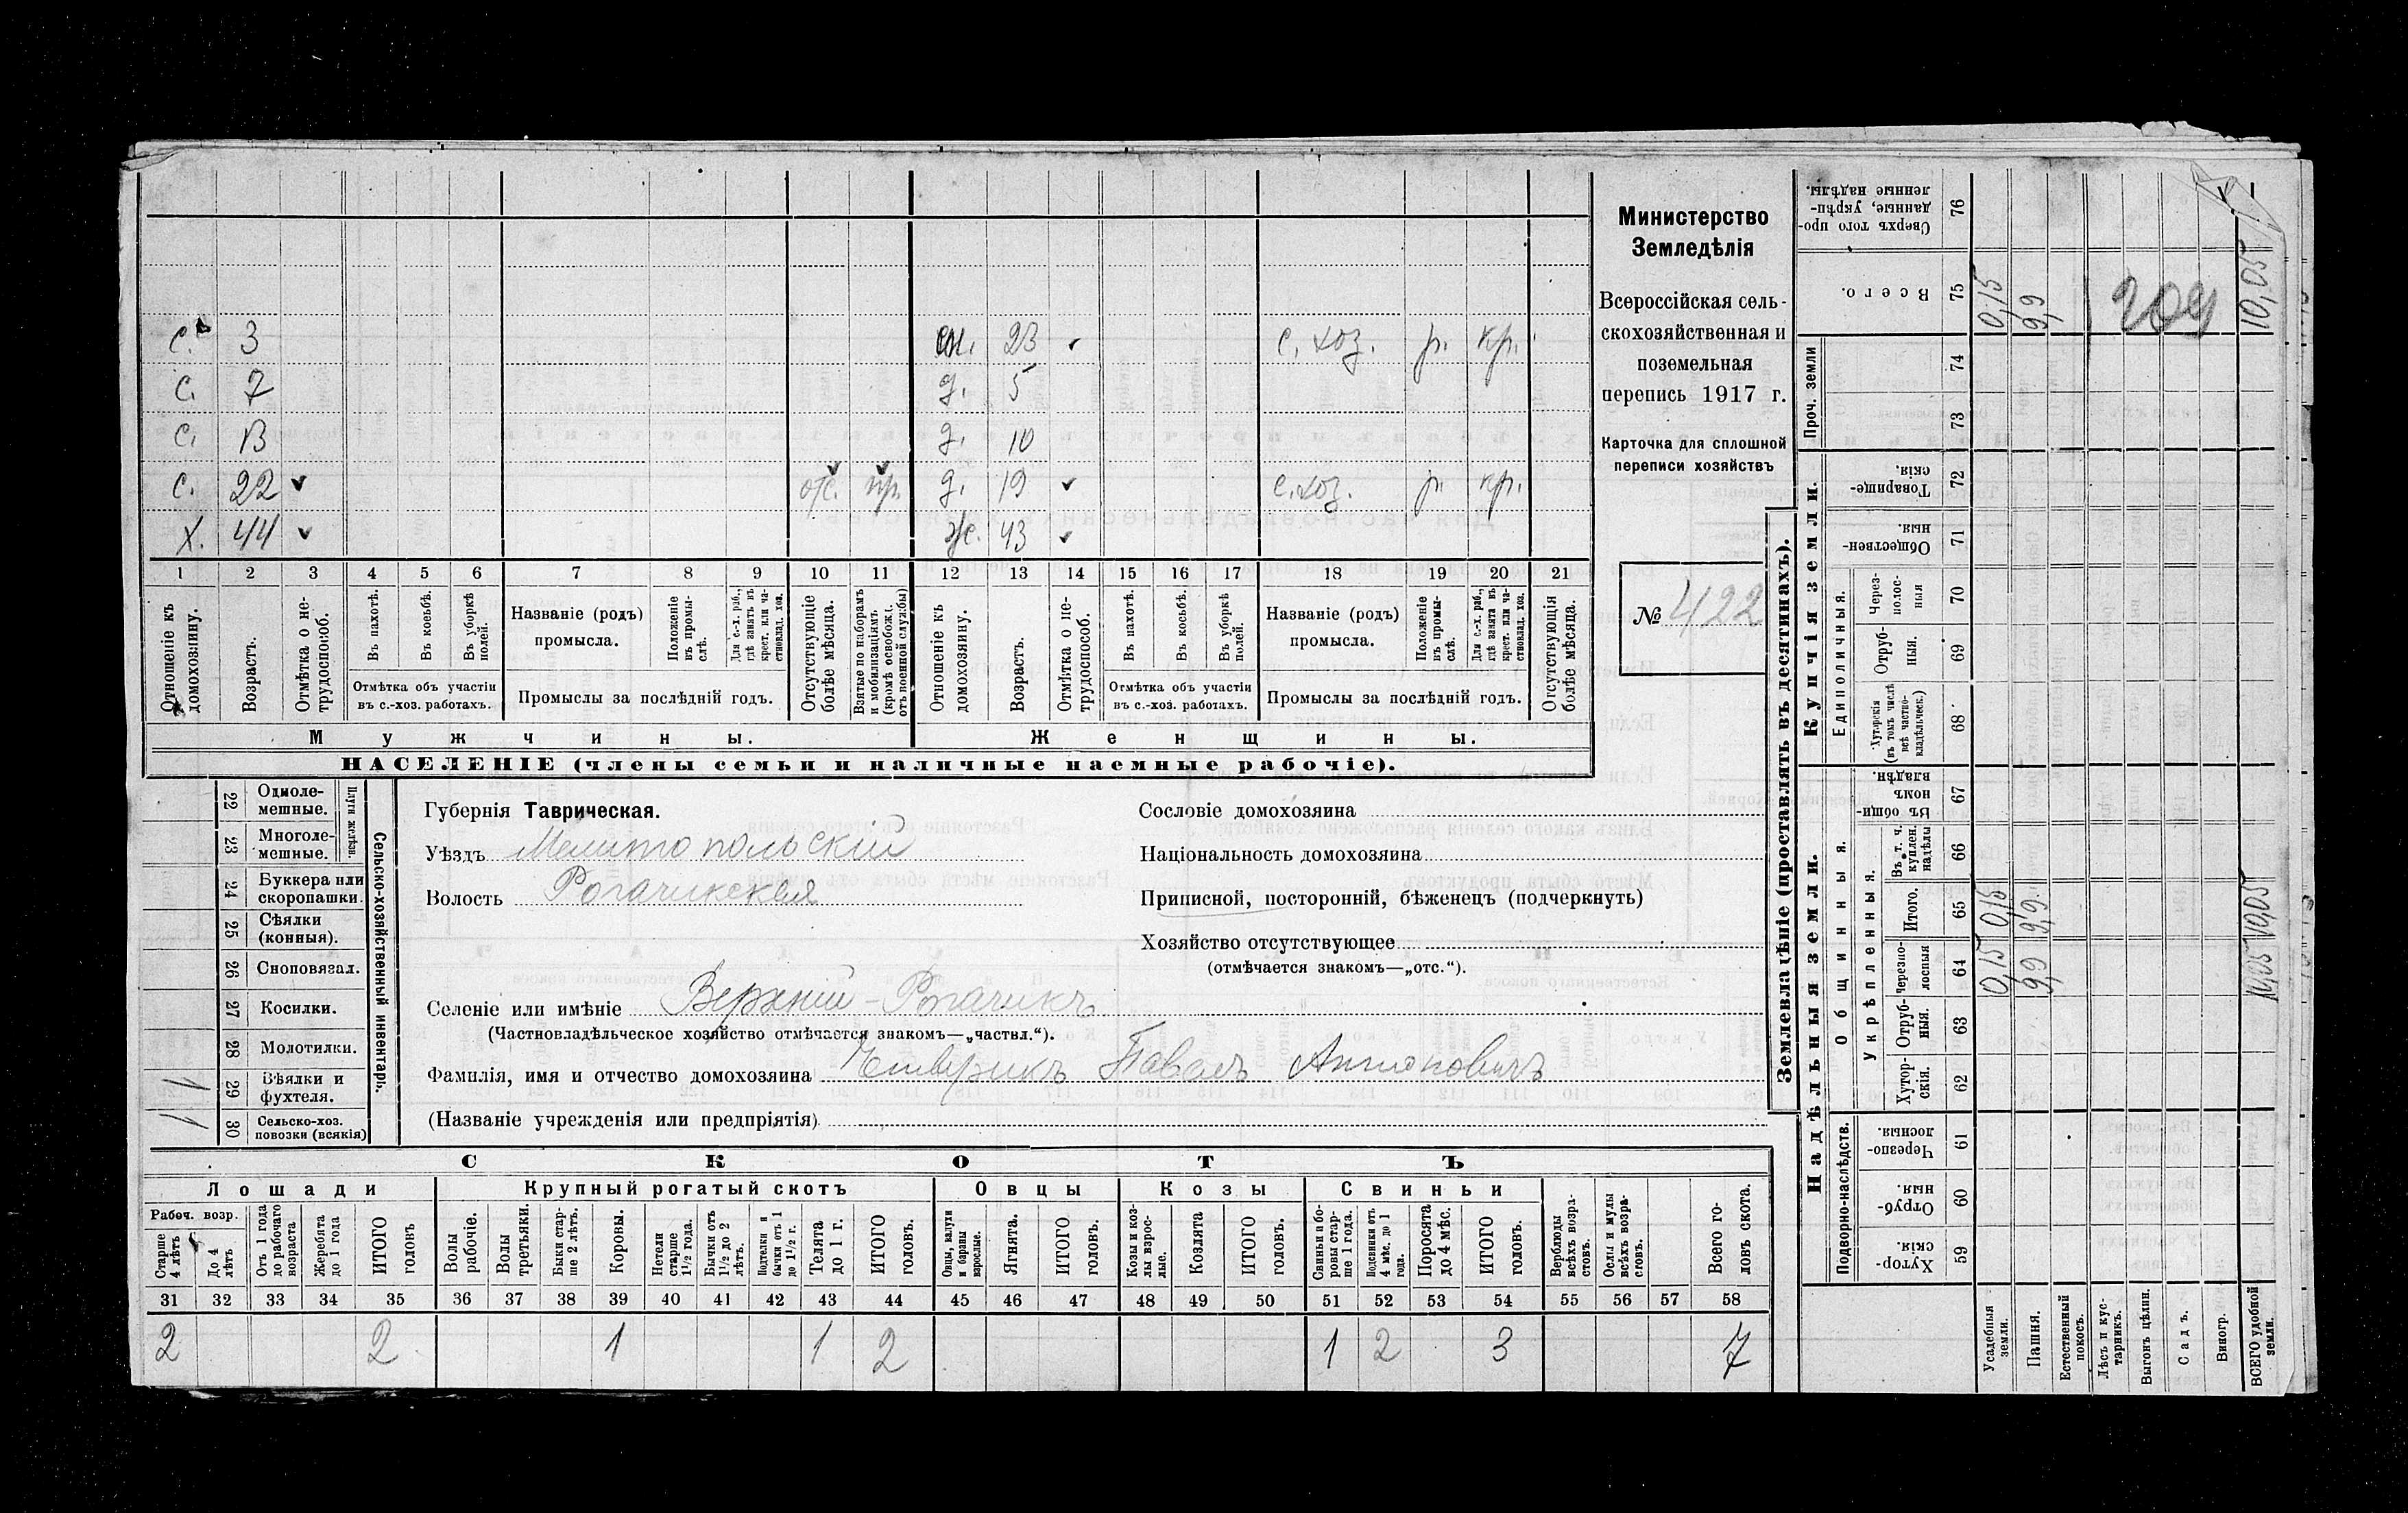 с. 3 сн. 23 ✓ с. хоз. р. кр.
с. 7 д. 5
с. 13 д. 10
с. 22 ✓ отс. пр. д. 19 ✓ с. хоз. р. кр.
х. 44 ✓ ж. 43 ✓
1 2 3 4 5 6 7 8 9 10 11 12 13 14 15 16 17 18 19 20 21
Отношеніе къ домохозяину.
Возрастъ.
Отмѣтка о не-
трудоспособ.
Въ пахотѣ.
Въ косьбѣ.
Въ уборкѣ полей.
Отмѣтка объ участіи
въ с.-хоз. работахъ.
Названіе (родъ)
промысла.
Положеніе
въ промы-
слѣ.
Для с.-х. раб.,
гдѣ занятъ въ
крест. или ча-
стновлад. хоз.
Промыслы за послѣдній годъ.
Отсутствующіе
болѣе мѣсяца.
Взятые по наборамъ
и мобилизаціямъ
(кромѣ освобож.
отъ военной службы)
Отношеніе къ
домохозяину.
Возрастъ.
Отмѣтка о не-
трудоспособ.
Въ пахотѣ.
Въ косьбѣ.
Въ уборкѣ
полей.
Отмѣтка объ участіи
въ с.-хоз. работахъ.
Названіе (родъ)
промысла.
Положеніе
въ промы-
слѣ.
Для с.-х. раб.,
гдѣ занята въ
крест. или ча-
стновлад. хоз.
Промыслы за послѣдній годъ.
Отсутствующія
болѣе мѣсяца.
Мужчины.
Женщины.
НАСЕЛЕНІЕ (члены семьи и наличные наемные рабочіе).
Министерство
Земледѣлія
Всероссійская сель-
скохозяйственная и
поземельная
перепись 1917 г.
Карточка для сплошной
переписи хозяйствъ
№ 422
22 Одноле-
мешные.
23 Многоле-
мешные.
Плуги желѣзн.
24 Буккера или
скоропашки.
25 Сѣялки
(конныя).
26 Сноповязал.
27 Косилки.
28 Молотилки.
29 Вѣялки и
фухтеля.
1
30 Сельско-хоз.
повозки (всякія)
1
Сельско-хозяйственный инвентарь.
Губернія Таврическая.
Уѣздъ Мелитопольскій
Волость Рогачикская
Селеніе или имѣніе Верхній-Рогачикъ
(Частновладѣльческое хозяйство отмѣчается знакомъ—„частвл.“).
Фамилія, имя и отчество домохозяина Четверикъ Павелъ Антоновичъ
(Названіе учрежденія или предпріятія)
Сословіе домохозяина
Національность домохозяина
Приписной, посторонній, бѣженецъ (подчеркнуть)
Хозяйство отсутствующее
(отмѣчается знакомъ—„отс.“).
СКОТЪ
Лошади
Крупный рогатый скотъ
Овцы
Козы
Свиньи
Рабоч. возр.
Старше
4 лѣтъ
До 4
лѣтъ
Отъ 1 года
до рабочаго
возраста
Жеребята
до 1 года
ИТОГО
головъ
Волы
рабочіе.
Волы
третьяки.
Быки стар-
ше 2 лѣтъ.
Коровы.
Нетели
старше
1½ года.
Бычки отъ
1½ до 2
лѣтъ.
Подтелки и
бычки отъ 1
до 1½ г.
Телята
до 1 г.
ИТОГО
головъ.
Овцы, валухи
и бараны
взрослые.
Ягнята.
ИТОГО
головъ.
Козы и коз-
лы взрос-
лые.
Козлята
ИТОГО
головъ.
Свиньи и бо-
ровы стар-
ше 1 года.
Подсвинки отъ
4 мѣс. до 1
года.
Поросята
до 4 мѣс.
ИТОГО
головъ.
Верблюды
всѣхъ возра-
стовъ.
Ослы и мулы
всѣхъ возра-
стовъ.
Всего го-
ловъ скота.
31 32 33 34 35 36 37 38 39 40 41 42 43 44 45 46 47 48 49 50 51 52 53 54 55 56 57 58
2 2 1 1 2 1 2 3 7
Землевладѣніе (проставлять въ десятинахъ).
Купчія земли.
Надѣльныя земли.
Сверхъ того про-
данные, укрѣп-
ленные надѣлы.
76
Всего.
75 0,15 9,9 209 10,05
Проч. земли
74
73
Товарище-
скія.
72
Обществен-
ныя.
71
Единоличныя.
Через-
полос-
ныя
70
Отруб-
ныя.
69
Хуторскія
(въ томъ числѣ
всѣ частно-
владѣльческ.)
68
Общинныя.
Въ общи-
номъ
владѣн.
67
Укрѣпленныя.
Въ т. ч.
куплен.
надѣлы
66
Итого.
65 0,15 9,9 10,05
Черезпо-
лосныя
64 0,15 9,9 10,05
Отруб-
ныя.
63
Хутор-
скія.
62
Подворно-наслѣдств.
Черезпо-
лосныя.
61
Отруб-
ныя.
60
Хутор-
скія.
59
Усадебныя
земли.
Пашня.
Естественный
покосъ.
Лѣсъ и кус-
тарникъ.
Выгонъ цѣлин.
Садъ.
Виногр.
ВСЕГО удобной
земли.